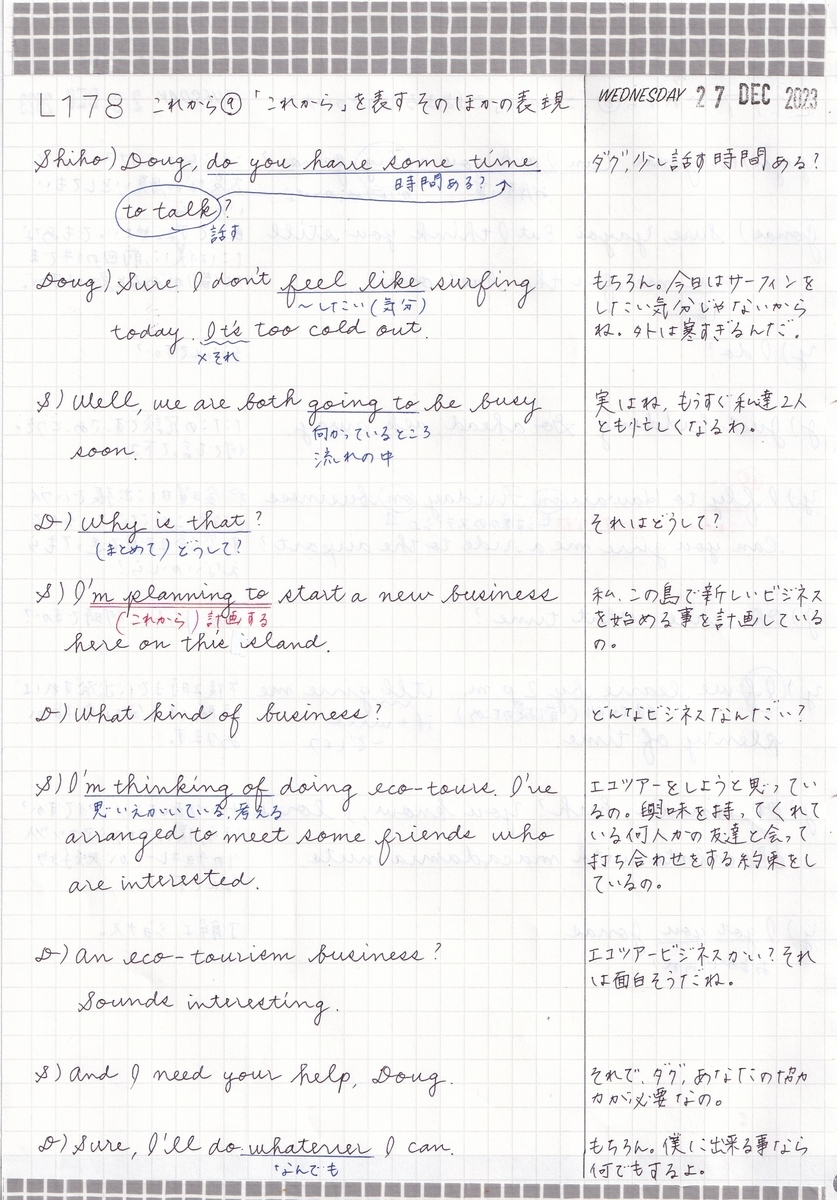 L178 これから⑨「これから」を表すそのほかの表現
WEDNESDAY 27 DEC 2023
Shiho) Doug, do you have some time
時間ある?
ダグ,少し話す時間ある?
to talk?
話す
Doug) Sure. I don't feel like surfing
〜したい(気分)
today. It's too cold out.
×それ
もちろん。今日はサーフィンを
したい気分じゃないから
ね。外は寒すぎるんだ。
S) Well, we are both going to be busy
向かっているところ
soon.
流れの中
実はね、もうすぐ私達2人
とも忙しくなるわ。
D) Why is that?
(まとめて)どうして?
それはどうして?
S) I'm planning to start a new business
(これから)計画する
here on this island.
私、この島で新しいビジネス
を始める事を計画している
の。
D) What kind of business?
どんなビジネスなんだい?
S) I'm thinking of doing eco-tours. I've
思いえがいている、考える
arranged to meet some friends who
are interested.
エコツアーをしようと思ってい
るの。興味を持ってくれて
いる何人かの友達と会って
打ち合わせをする約束をし
ているの。
D) An eco-tourism business?
Sounds interesting.
エコツアービジネスかい?それ
は面白そうだね。
S) And I need your help, Doug.
それで、ダグ,あなたの協力
力が必要なの。
D) Sure, I'll do whatever I can.
なんでも
もちろん。僕に出来る事なら
何でもするよ。